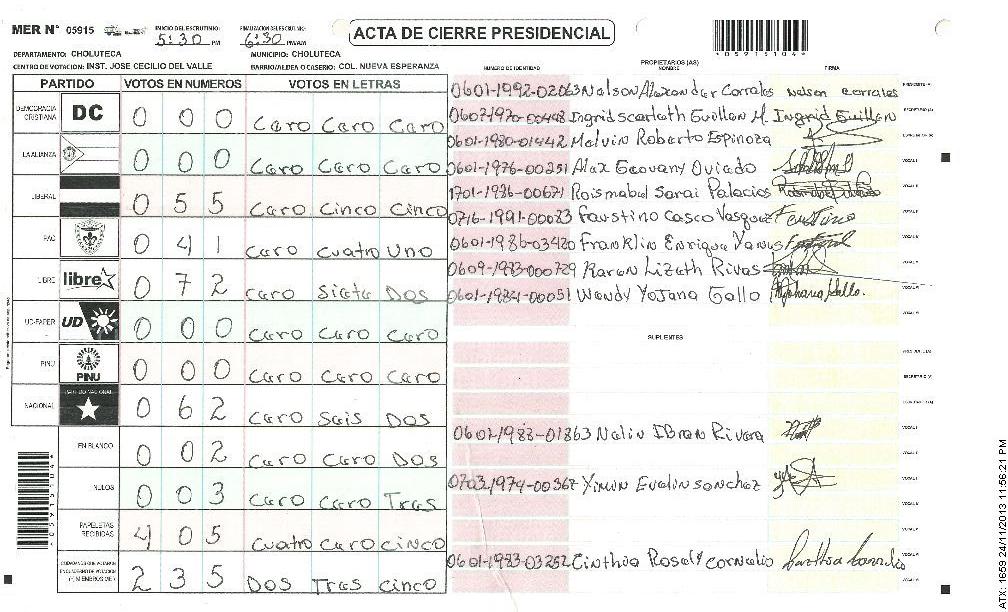 MER Nº 05915 INICIO DEL ESCRUTINIO: 5:30 PM FINALIZACION DEL ESCRUTINIO: 6:30 PM/AM ACTA DE CIERRE PRESIDENCIAL
DEPARTAMENTO: CHOLUTECA MUNICIPIO: CHOLUTECA
CENTRO DE VOTACIÓN: INST. JOSE CECILIO DEL VALLE BARRIO/ALDEA O CASERIO: COL. NUEVA ESPERANZA
PROPIETARIOS (AS)
NUMERO DE IDENTIDAD NOMBRE FIRMA
PARTIDO VOTOS EN NUMEROS VOTOS EN LETRAS
DEMOCRACIA CRISTIANA DC 0 0 0 Caro Caro Caro
LA ALIANZA 0 0 0 Caro Caro Caro
LIBERAL 0 5 5 Caro Cinco Cinco
PAC 0 4 1 Caro Cuatro Uno
LIBRE libre 0 7 2 Caro Siete Dos
UD-FAPER UD 0 0 0 Caro Caro Caro
PINU PINU 0 0 0 Caro Caro Caro
NACIONAL 0 6 2 Caro Sais Dos
EN BLANCO 0 0 2 Caro Caro Dos
NULOS 0 0 3 Caro Caro Tras
PAPELETAS RECIBIDAS 4 0 5 Cuatro Caro Cinco
2 3 5 Dos Tras Cinco
0601-1992-02063 Nelson Alexander Corrales nelson corrales
0607-1970-00448 Ingrid scarleth Guillen M. Ingrid Guillen
0601-1980-01442 Melvin Roberto Espinoza
0601-1976-00351 Alex Geovany Oviedo
1701-1986-00671 Roismabel Sarai Palacios
0716-1991-00083 Faustino Casco Vasquez Faustino
0601-1986-03420 Franklin Enrique
0609-1983-000709 Karen Lizeth Rivas
0601-1984-00051 Wendy Yojana Gallo
SUPLENTES
0601-1988-01863 Nelin Ibran Rivera
0703-1974-00367 Yimin Evelin sanchez
0601-1983-03252 Cinthia Rosely Cornelio
ATX: 1659 24/11/2013 11:56:21 PM